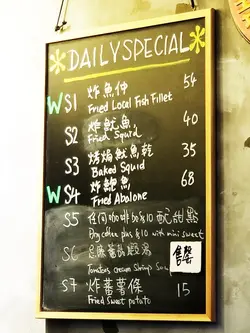 DAILY SPECIAL
W S1 炸魚仲 54
Fried Local Fish Fillet
S2 炸魷魚 40
Fried Squid
S3 烤焗魷魚乾 35
Baked Squid
W S4 炸鮑魚 68
Fried Abalone
S5 任何咖啡加$10 配甜點
Any coffee plus $10 with mini sweet
S6
Tomatoes cream Shrimp Soup
售罄
S7 炸蕃薯條 15
Fried Sweet potato